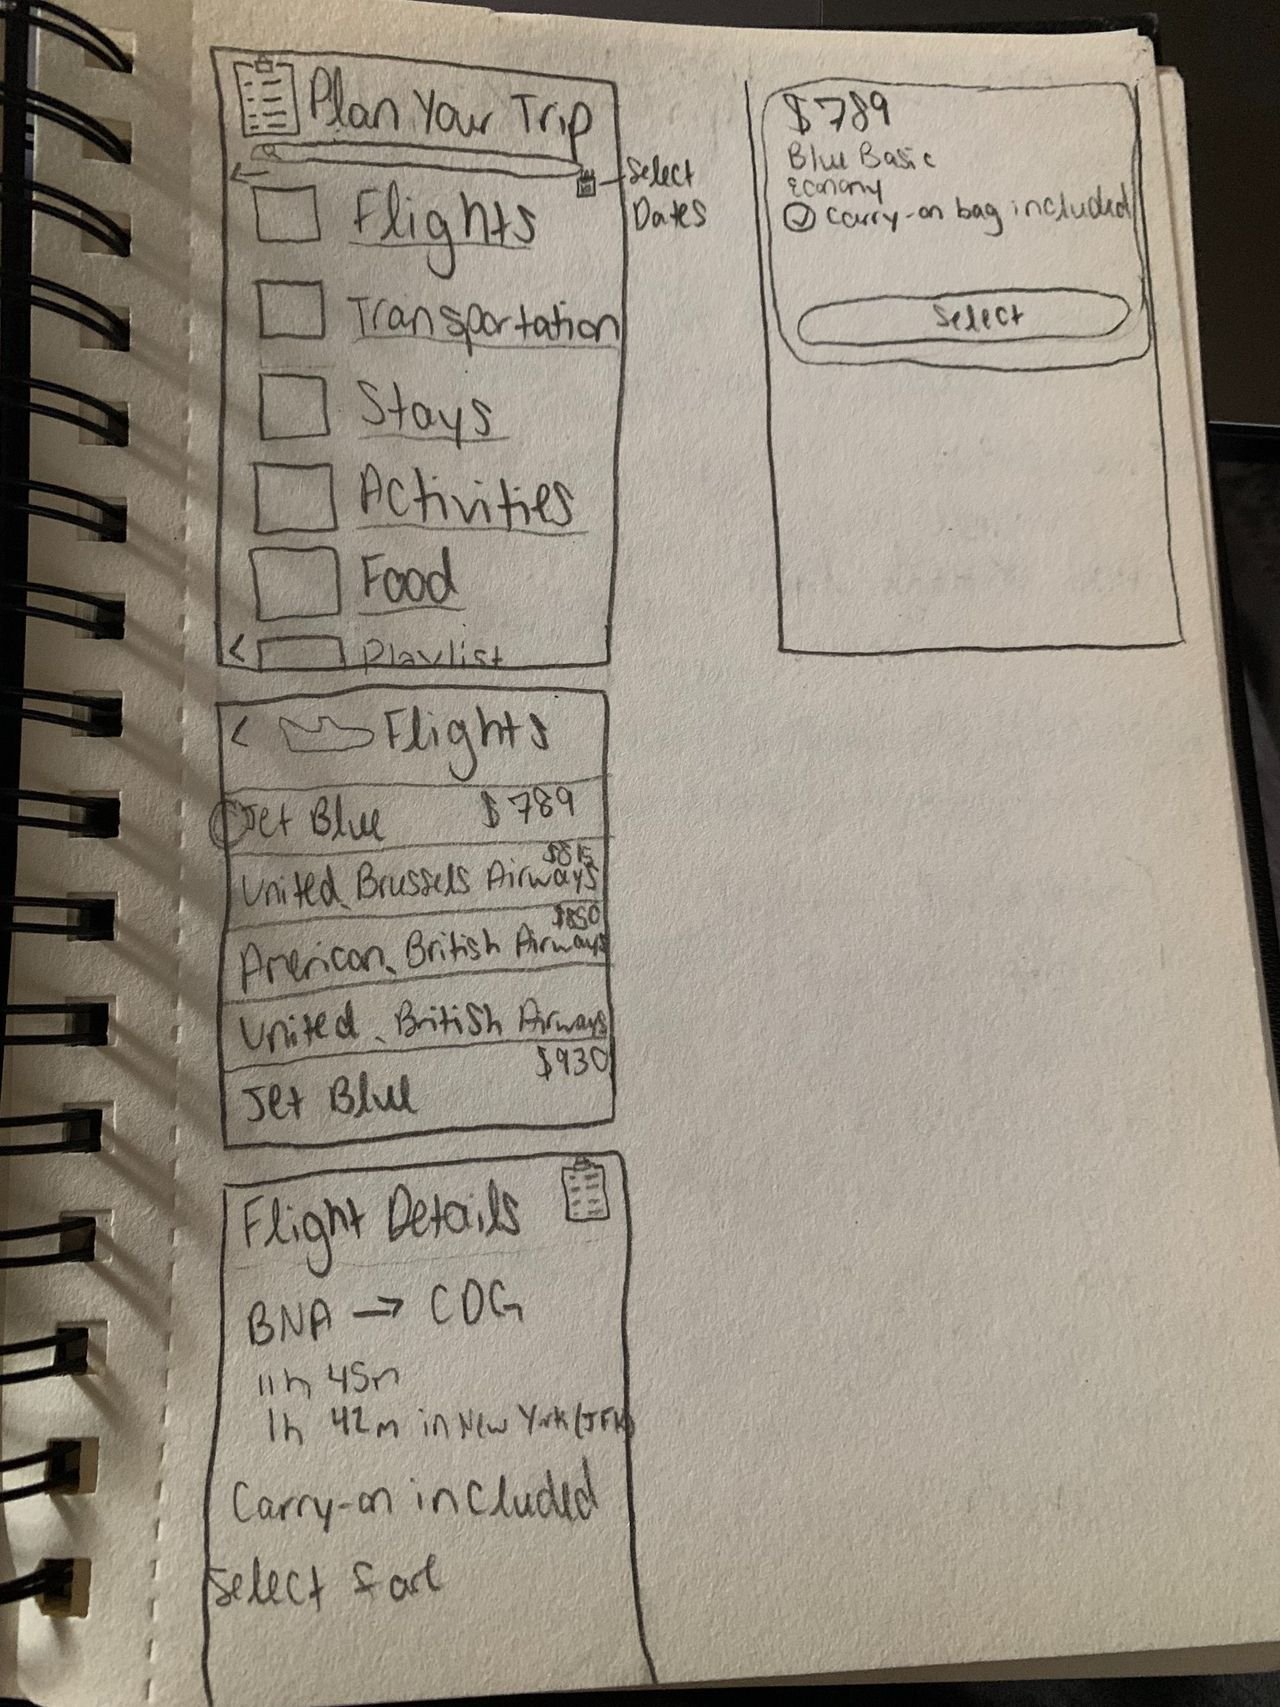 Plan Your Trip
Select
Dates
Flights
Transportation
Stays
Activities
Food
Playlist
Flights
Jet Blue $789
$815
United, Brussels Airways
$850
American, British Airways
United, British Airways
$930
Jet Blue
Flight Details
BNA → CDG
11h 45m
1h 42m in New York (JFK)
Carry-on included
Select fare
$789
Blue Basic
Economy
Carry-on bag included
Select